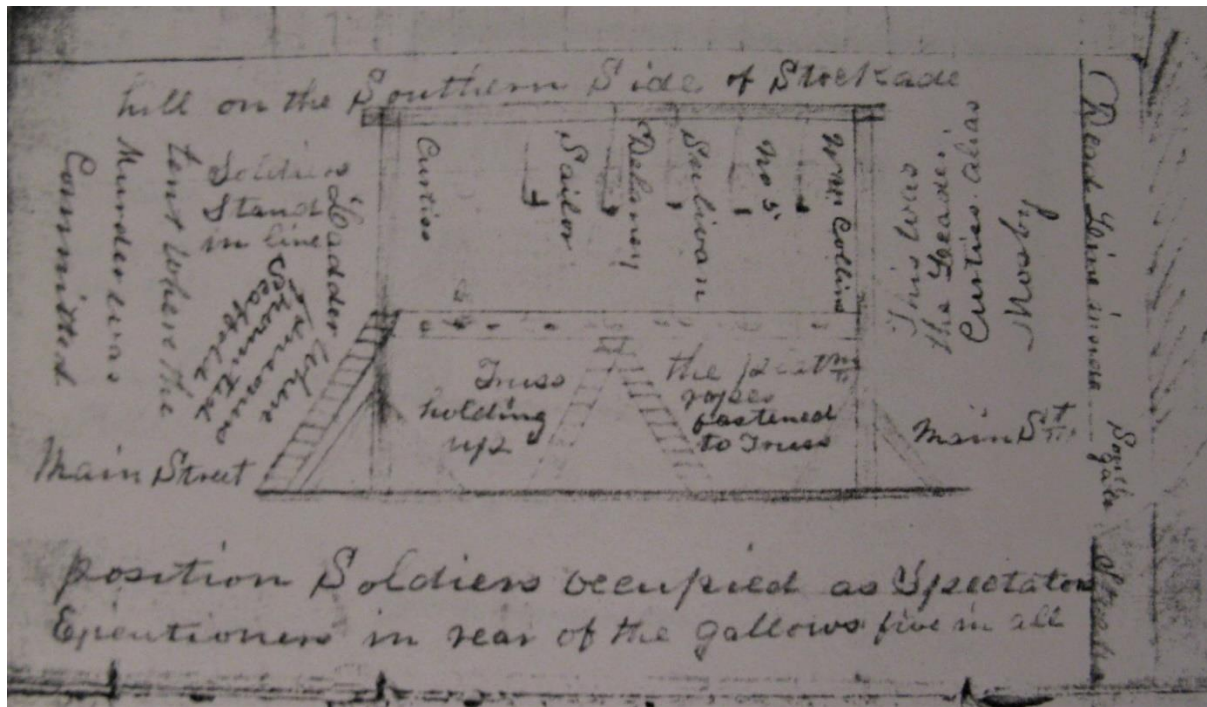 hill on the Southern Side of Stockade
Committed
Murder was
tent where the
Soldiers
Stand
in line
Ladder
where
Scaffold
Curtiss
Sailor
Delaney
Sulivan
No 5
Wm Collins
This was
the Leader
Curtiss alias
Mosby
Dead Line inside
South
gate
Stockade
Truss
holding
up
the platm
ropes
fastened
to Truss
Main Street
Main St
position Soldiers occupied as Spectators
Executioners in rear of the gallows five in all